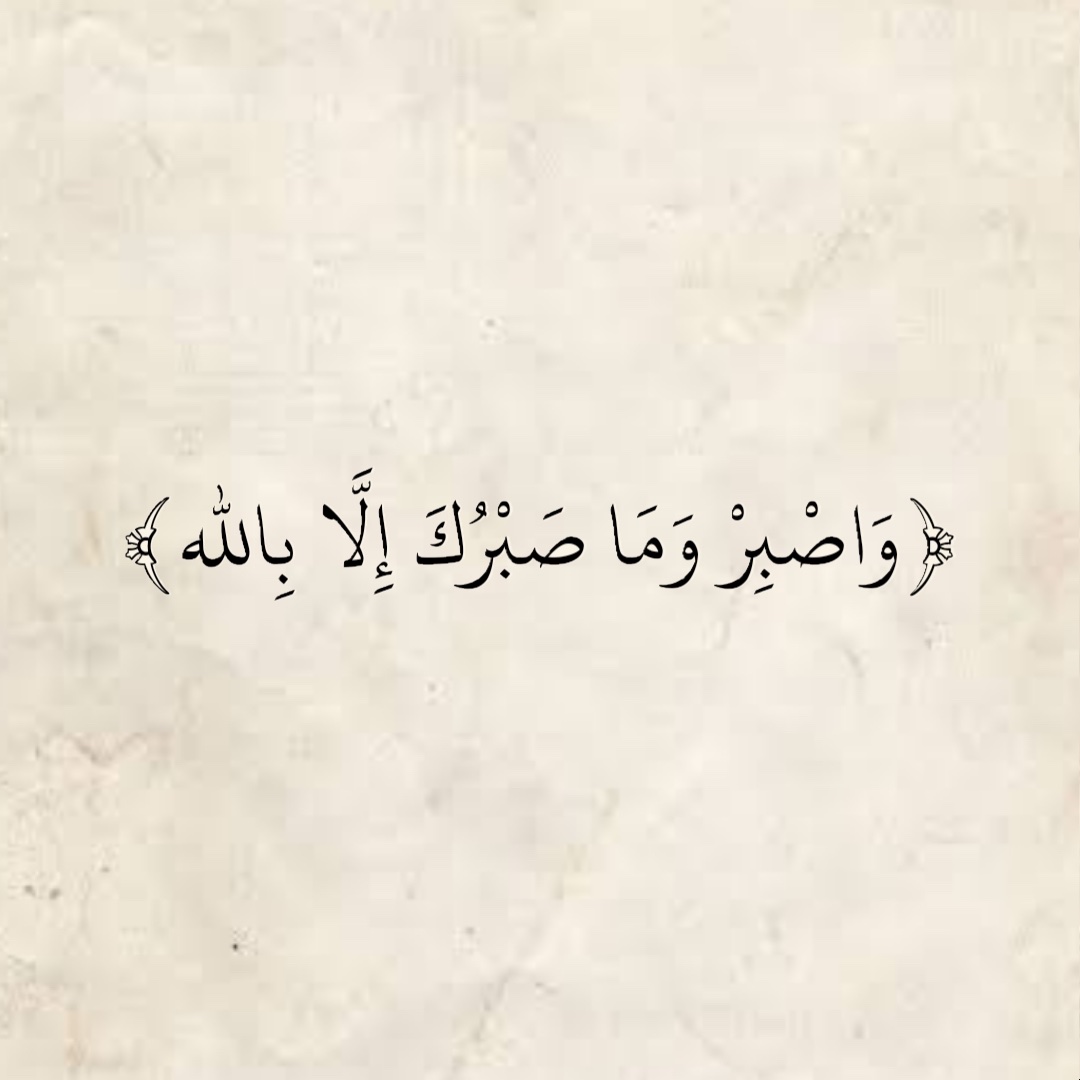 ﴿ وَاصْبِرْ وَمَا صَبْرُكَ إِلَّا بِاللّٰه ﴾